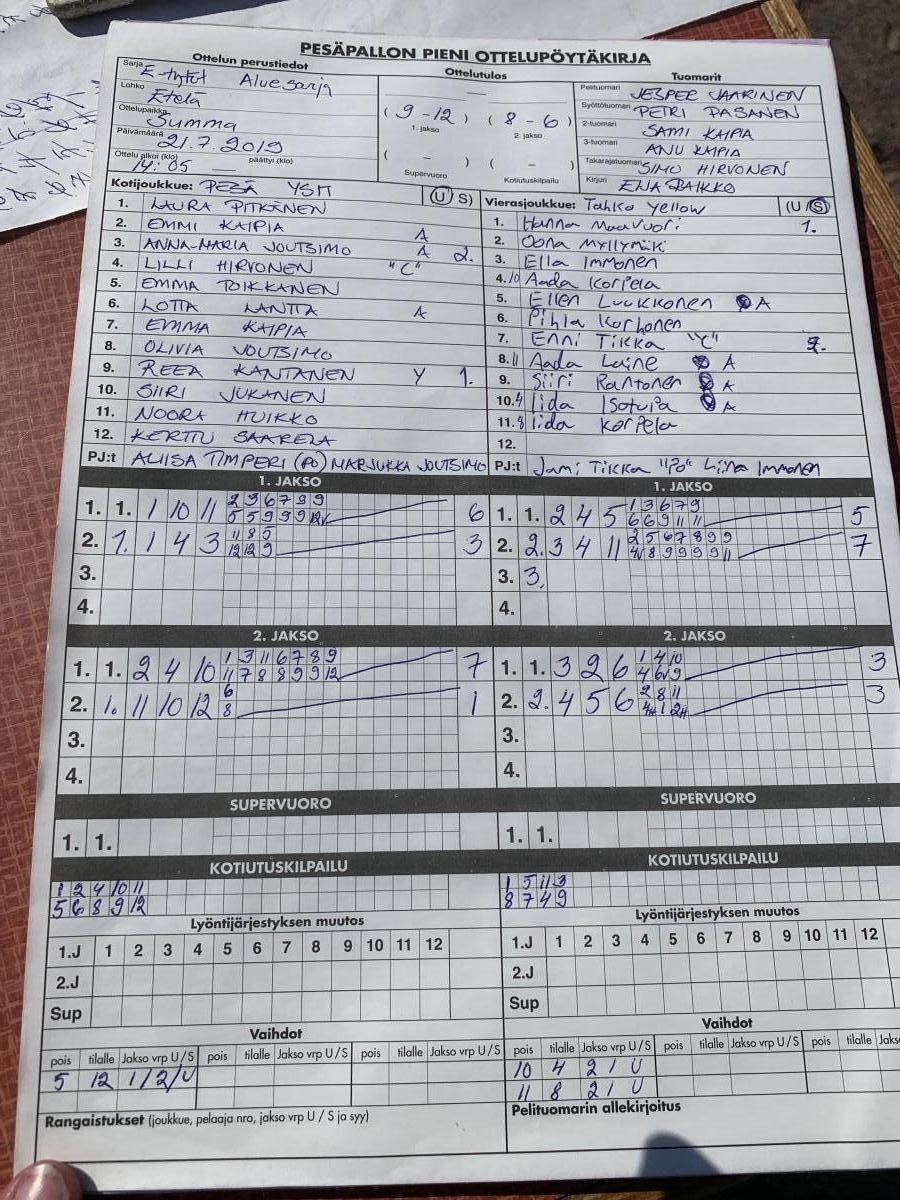 PESÄPALLON PIENI OTTELUPÖYTÄKIRJA
Ottelun perustiedot
Sarja E-tytöt Aluesarja
Lohko Etelä
Ottelupaikka Summa
Päivämäärä 21.7.2019
Ottelu alkoi (klo) päättyi (klo)
14:05
Ottelutulos
(9-12) (8-6)
1. jakso 2. jakso
( - ) ( - )
Supervuoro Kotiutuskilpailu
Tuomarit
Pelituomari JESPER JAARINEN
Syöttötuomari PETRI PASANEN
2-tuomari SAMI KAIPIA
3-tuomari ANU KAIPIA
Takarajatuomari SIMO HIRVONEN
Kirjuri
Kotijoukkue: PESÄ YSIT (U S)
1. LAURA PITKÄNEN
2. EMMI KAIPIA A
3. ANNA-MARIA JOUTSIMO A 2.
4. LILLI HIRVONEN "C"
5. EMMA TOIKKANEN
6. LOTTA LANTTA A
7. EMMA KAIPIA
8. OLIVIA JOUTSIMO
9. REEA KANTANEN Y 1.
10. SIIRI JUKANEN
11. NOORA HUIKKO
12. KERTTU SAARELA
PJ:t ALIISA TIMPERI (PO) MARJUKKA JOUTSIMO
Vierasjoukkue: Tahko Yellow (U/S)
1. Hanna Maavuori 1.
2. Oona Myllymäki
3. Ella Immonen
4. 10 Aada Korpela
5. Ellen Luukkonen A
6. Pihla Korhonen
7. Enni Tikka "C" 2.
8. 11 Aada Laine A
9. Siiri Rantonen A
10. 4 Iida A
11. 8 Iida Korpela
12.
PJ:t Jami Tikka "PO" Liina Immonen
1. JAKSO
1. 1. 1 10 11 2 3 6 7 9 9 6
5 5 9 9 9 12
2. 1. 1 4 3 11 8 5 3
12 12 9
3.
4.
1. JAKSO
1. 1. 2 4 5 1 3 6 7 9 5
6 6 9 11 11
2. 2. 3 4 11 2 5 6 7 8 9 9 7
4 8 9 9 9 9 11
3. 3.
4.
2. JAKSO
1. 1. 2 4 10 1 3 11 6 7 8 9 7
11 7 8 8 9 9 12
2. 1. 11 10 12 6 1
8
3.
4.
2. JAKSO
1. 1. 3 2 6 1 4 10 3
4 6 9
2. 2. 4 5 6 2 8 11 3
3.
4.
SUPERVUORO
1. 1.
SUPERVUORO
1. 1.
KOTIUTUSKILPAILU
1 2 4 10 11
5 6 8 9 12
KOTIUTUSKILPAILU
1 5 11 3
8 7 4 9
Lyöntijärjestyksen muutos
1.J 1 2 3 4 5 6 7 8 9 10 11 12
2.J
Sup
Lyöntijärjestyksen muutos
1.J 1 2 3 4 5 6 7 8 9 10 11 12
2.J
Sup
Vaihdot
pois tilalle Jakso vrp U/S pois tilalle Jakso vrp U/S pois tilalle Jakso vrp U/S
5 12 1/2/U
Vaihdot
pois tilalle Jakso vrp U/S pois tilalle Jakso vrp U/S pois tilalle Jakso
10 4 2 1 U
11 8 2 1 U
Rangaistukset (joukkue, pelaaja nro, jakso vrp U / S ja syy)
Pelituomarin allekirjoitus